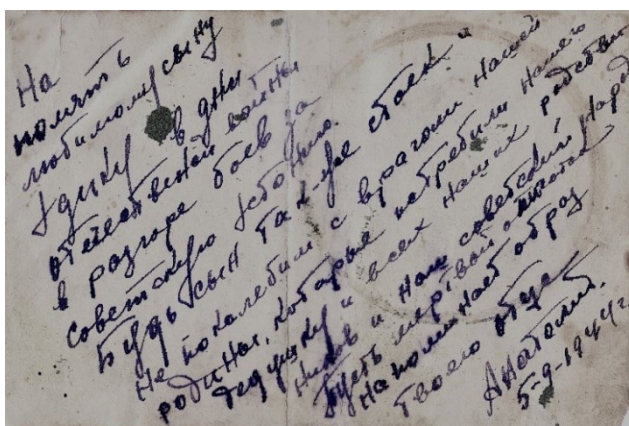 На
помять
любимому сыну
Эдику в дни
отечественной войны
в разгаре боев за
советскую Эстонию.
Будь сын так-же стоек и
не поколебим с врагами нашей
родины, которые истребили нашего
дедушку и всех наших родствен-
ников и наш советский народ
Пусть мертвой отпечаток
Напоминает образ
Твоего отца
Анатолий.
5-9-1944г.